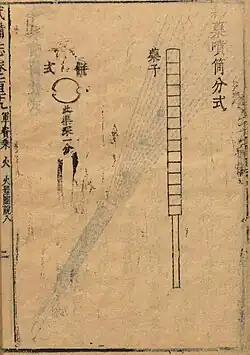 藥噴筒分式
藥子
餅式
此樂琹一分
武備志卷二百二十九 軍資乘 火 火器圖說八 二